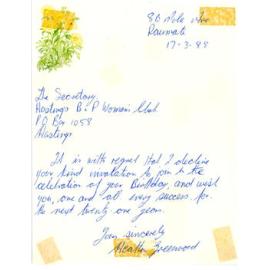 8B Mole
Raumati
17-3-88
The Secretary.
Hastings B & P Women's Club
P O Box 1058
Hastings
It is with regret that I decline
your kind invitation to join in the
celebration of your Birthday, and wish
you, one and all every success for
the next twenty one years.
Yours sincerely
Heather Greenwood